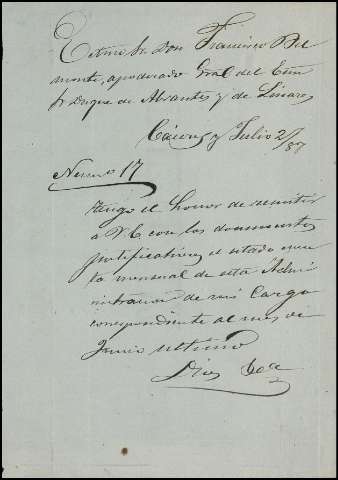 Exmo Sr Don Francisco Bel
monte, apoderado Gral del Exmo
Sr Duque de Abrantes y de Linares
Cáceres y Julio 2/87
Numero 17
Tengo el honor de remitir
a V.E. con los documentos
justificativos el estado cuen
ta mensual de esta Admi
nistracion de mi Cargo
correspondiente al mes de
Junio ultimo
Dios